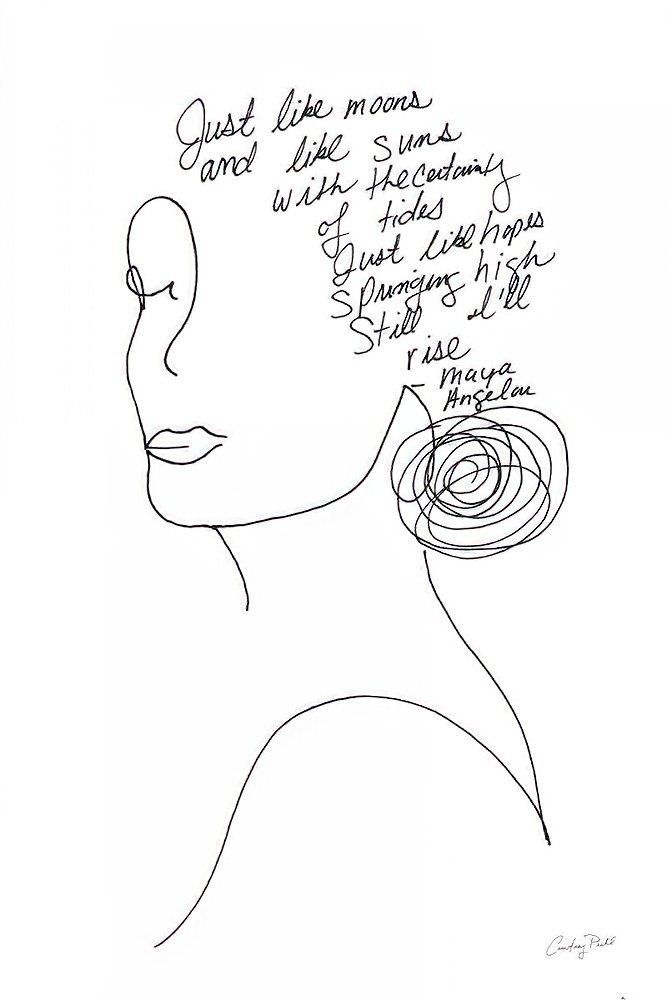 Just like moons
and like suns
with the certainty
of tides
Just like hopes
springing high
Still I'll
rise
- Maya
Angelou